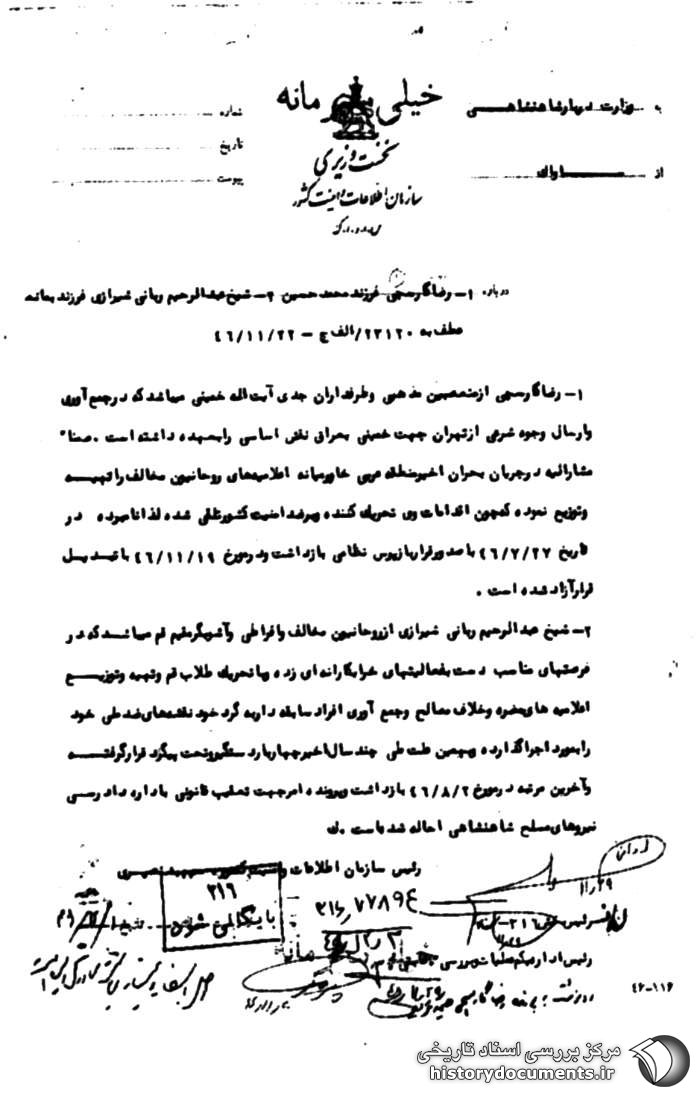 خیلی محرمانه
به وزارت دربار شاهنشاهی
شماره
نخست وزیری
تاریخ
از ساواک
سازمان اطلاعات و امنیت کشور
پیوست
درباره ۱- رضا گارسچی فرزند محمد حسین ۲- شیخ عبدالرحیم ربانی شیرازی فرزند
عطف به ۲۳۱۲۰/الف ج - ۴۶/۱۱/۲۲
۱- رضا گارسچی از متعصبین مذهبی و طرفداران جدی آیت اله خمینی میباشد که در جمع آوری
و ارسال وجوه شرعی از تهران جهت خمینی بحرانی نقش اساسی را بعهده داشته است. ضمنا"
مشارالیه در جریان بحران اخیر منطقه عربی خاورمیانه اعلامیه‌های روحانیون مخالف را تهیه
و توزیع نموده که چون اقدامات وی تحریک کننده و بر ضد امنیت کشور تلقی شده لذا نامبرده در
تاریخ ۴۶/۷/۲۷ با صدور قرار بازپرس نظامی بازداشت و در مورخ ۴۶/۱۱/۱۹ با تبدیل
قرار آزاد شده است.
۲- شیخ عبدالرحیم ربانی شیرازی از روحانیون مخالف و افراطی و آشوبگر مقیم قم میباشد که در
فرصتهای مناسب دست بفعالیتهای خرابکارانه ای زده و با تحریک طلاب قم و تهیه و توزیع
اعلامیه های مضره و خلاف مصالح و جمع آوری افراد سابقه دار به گرد خود نقشه‌های ضد ملی خود
را بمورد اجرا گذارده و بهمین علت طی چند سال اخیر چهار بار دستگیر و تحت پیگرد قرار گرفته
و آخرین مرتبه در مورخ ۴۶/۸/۲ بازداشت و پرونده امر جهت تعقیب قانونی باداره دادرسی
نیروهای مسلح شاهنشاهی احاله شده است. ک
رئیس سازمان اطلاعات و امنیت کشور
۳۱۶
بایگانی شود
۳۱۶/۷۷۸۹۴
۴۶-۱۱۶
مرکز بررسی اسناد تاریخی
historydocuments.ir